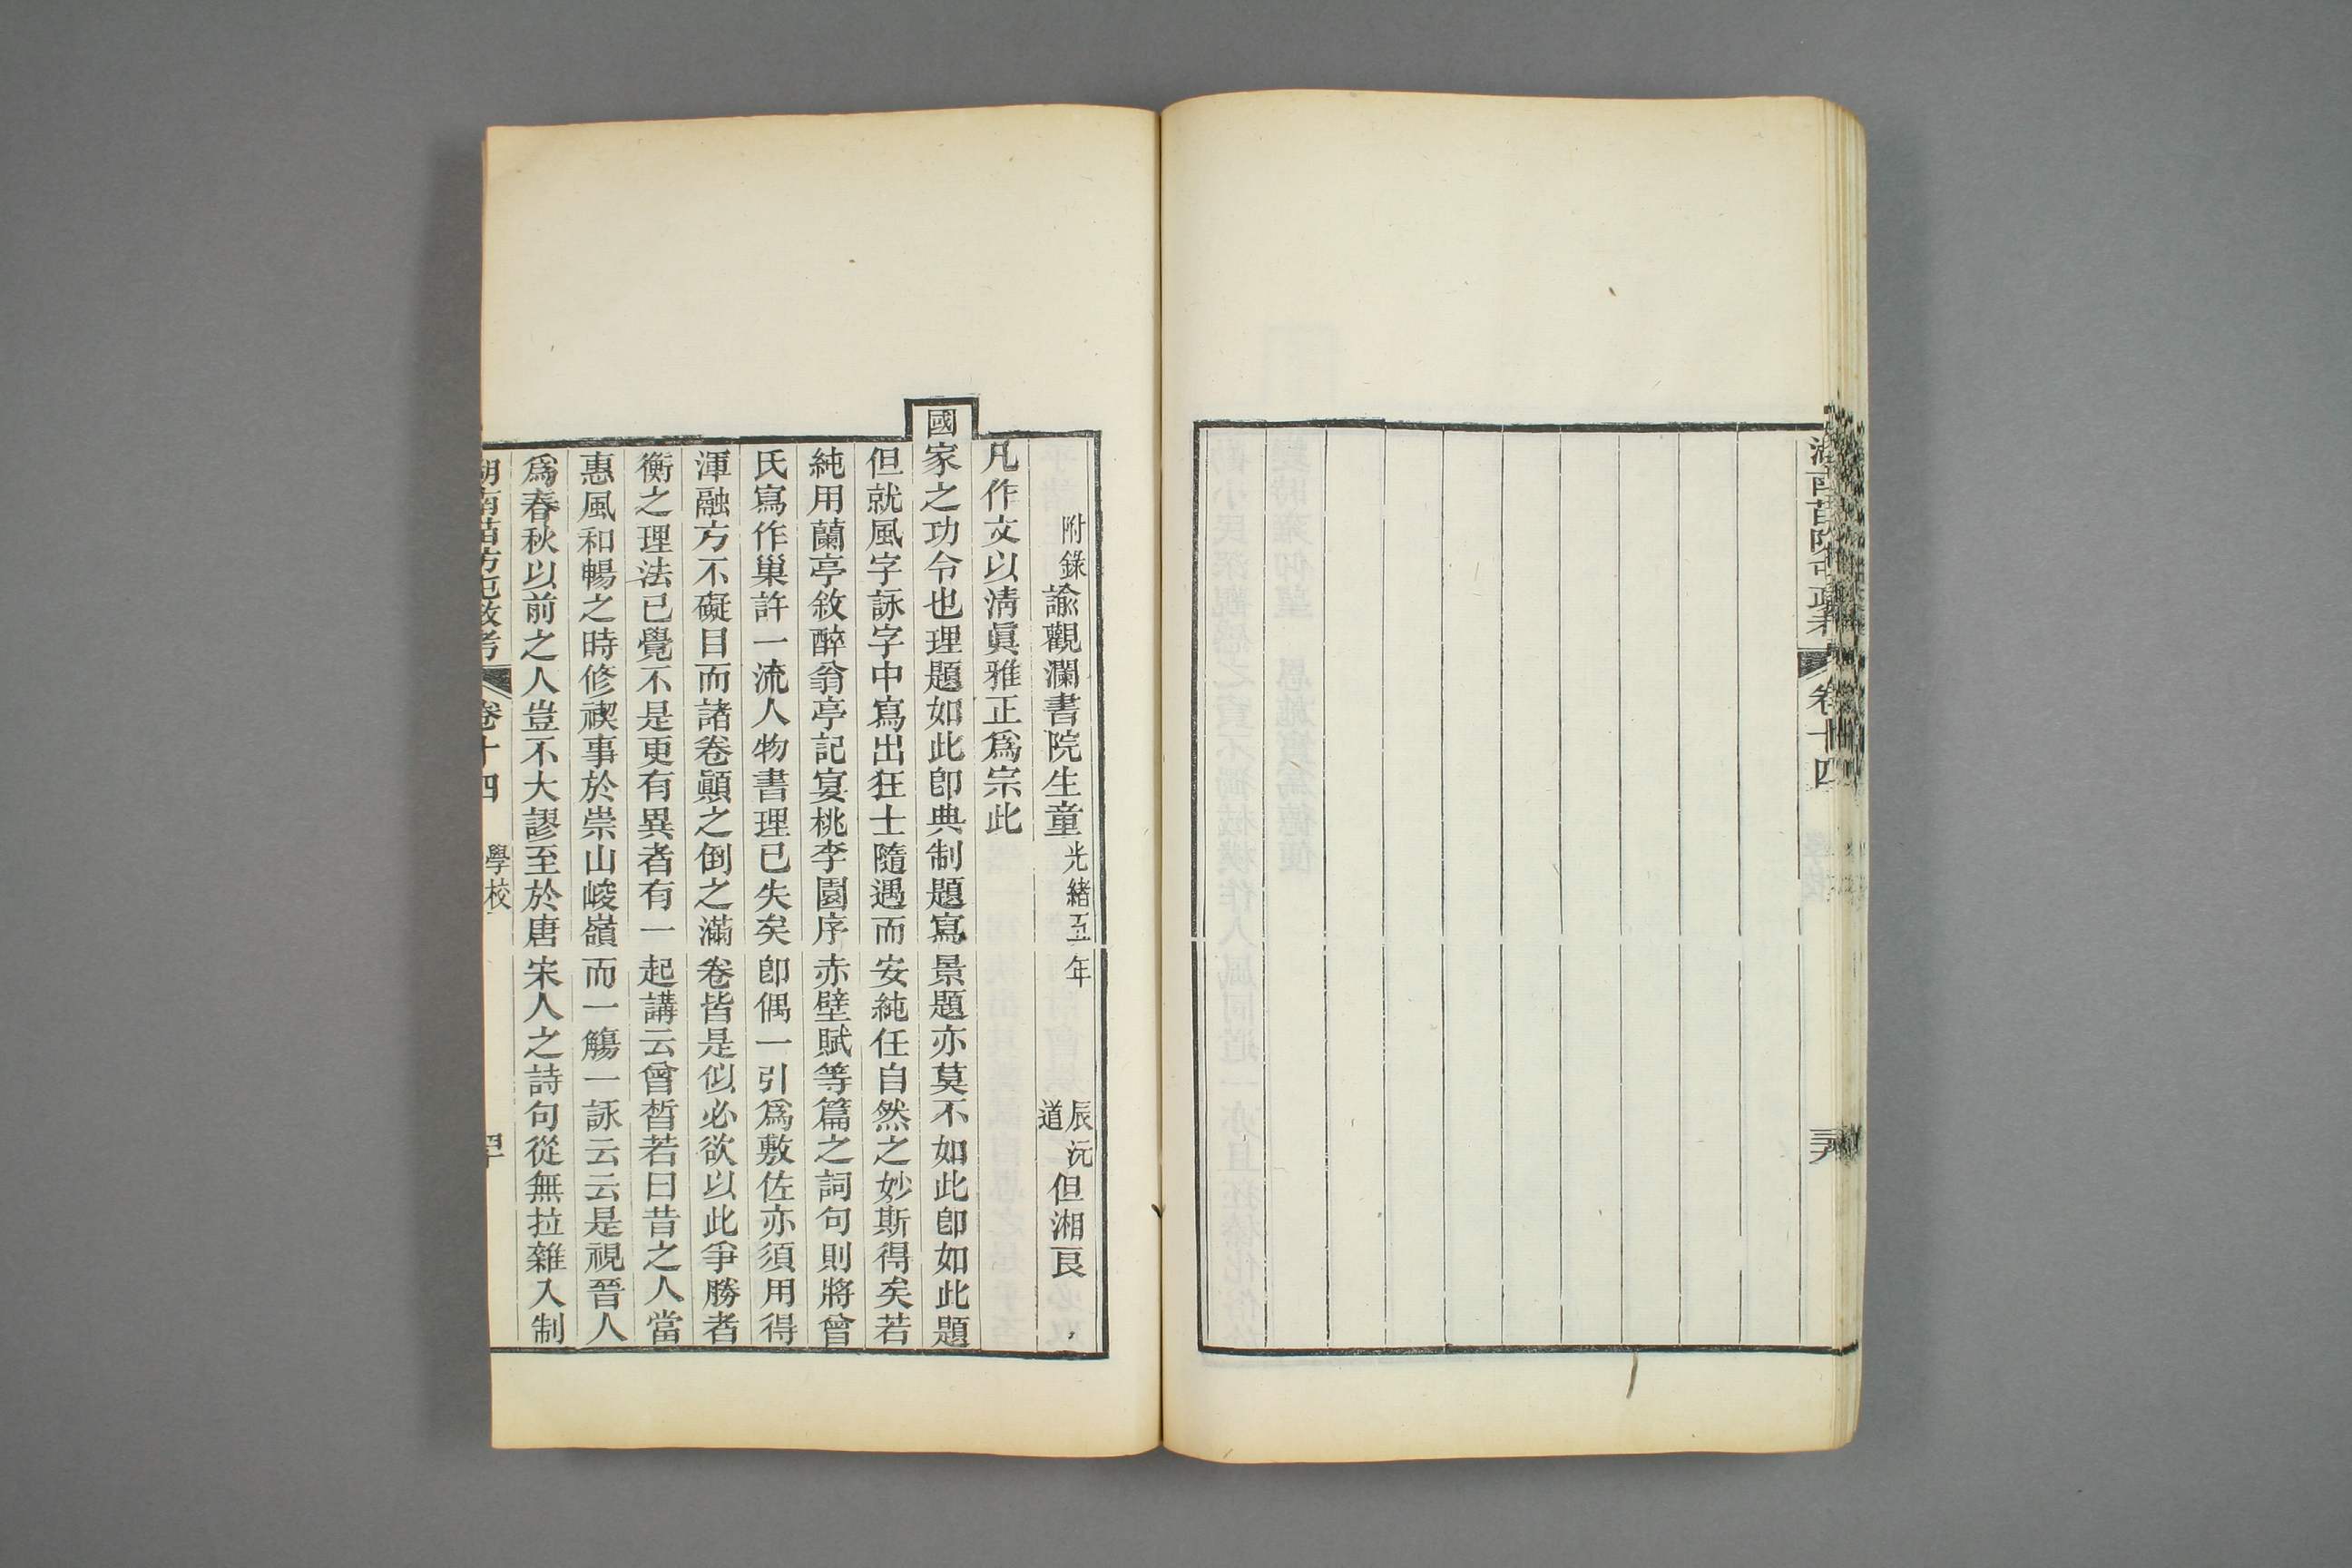 卷十四
附錄諭觀瀾書院生童光緒五年辰沅道但湘良
凡作文以淸眞雅正爲宗此
國家之功令也理題如此卽典制題寫景題亦莫不如此卽如此題
但就風字詠字中寫出狂士隨遇而安純任自然之妙斯得矣若
純用蘭亭敘醉翁亭記宴桃李園序赤壁賦等篇之詞句則將曾
氏寫作巢許一流人物書理已失矣卽偶一引爲敷佐亦須用得
渾融方不礙目而諸卷顚之倒之滿卷皆是似必欲以此爭勝者
衡之理法已覺不是更有異者有一起講云曾皙若曰昔之人當
惠風和暢之時修禊事於崇山峻嶺而一觴一詠云云是視晉人
爲春秋以前之人豈不大謬至於唐宋人之詩句從無拉雜入制
湖南苗防屯政考 卷十四 學校 四十